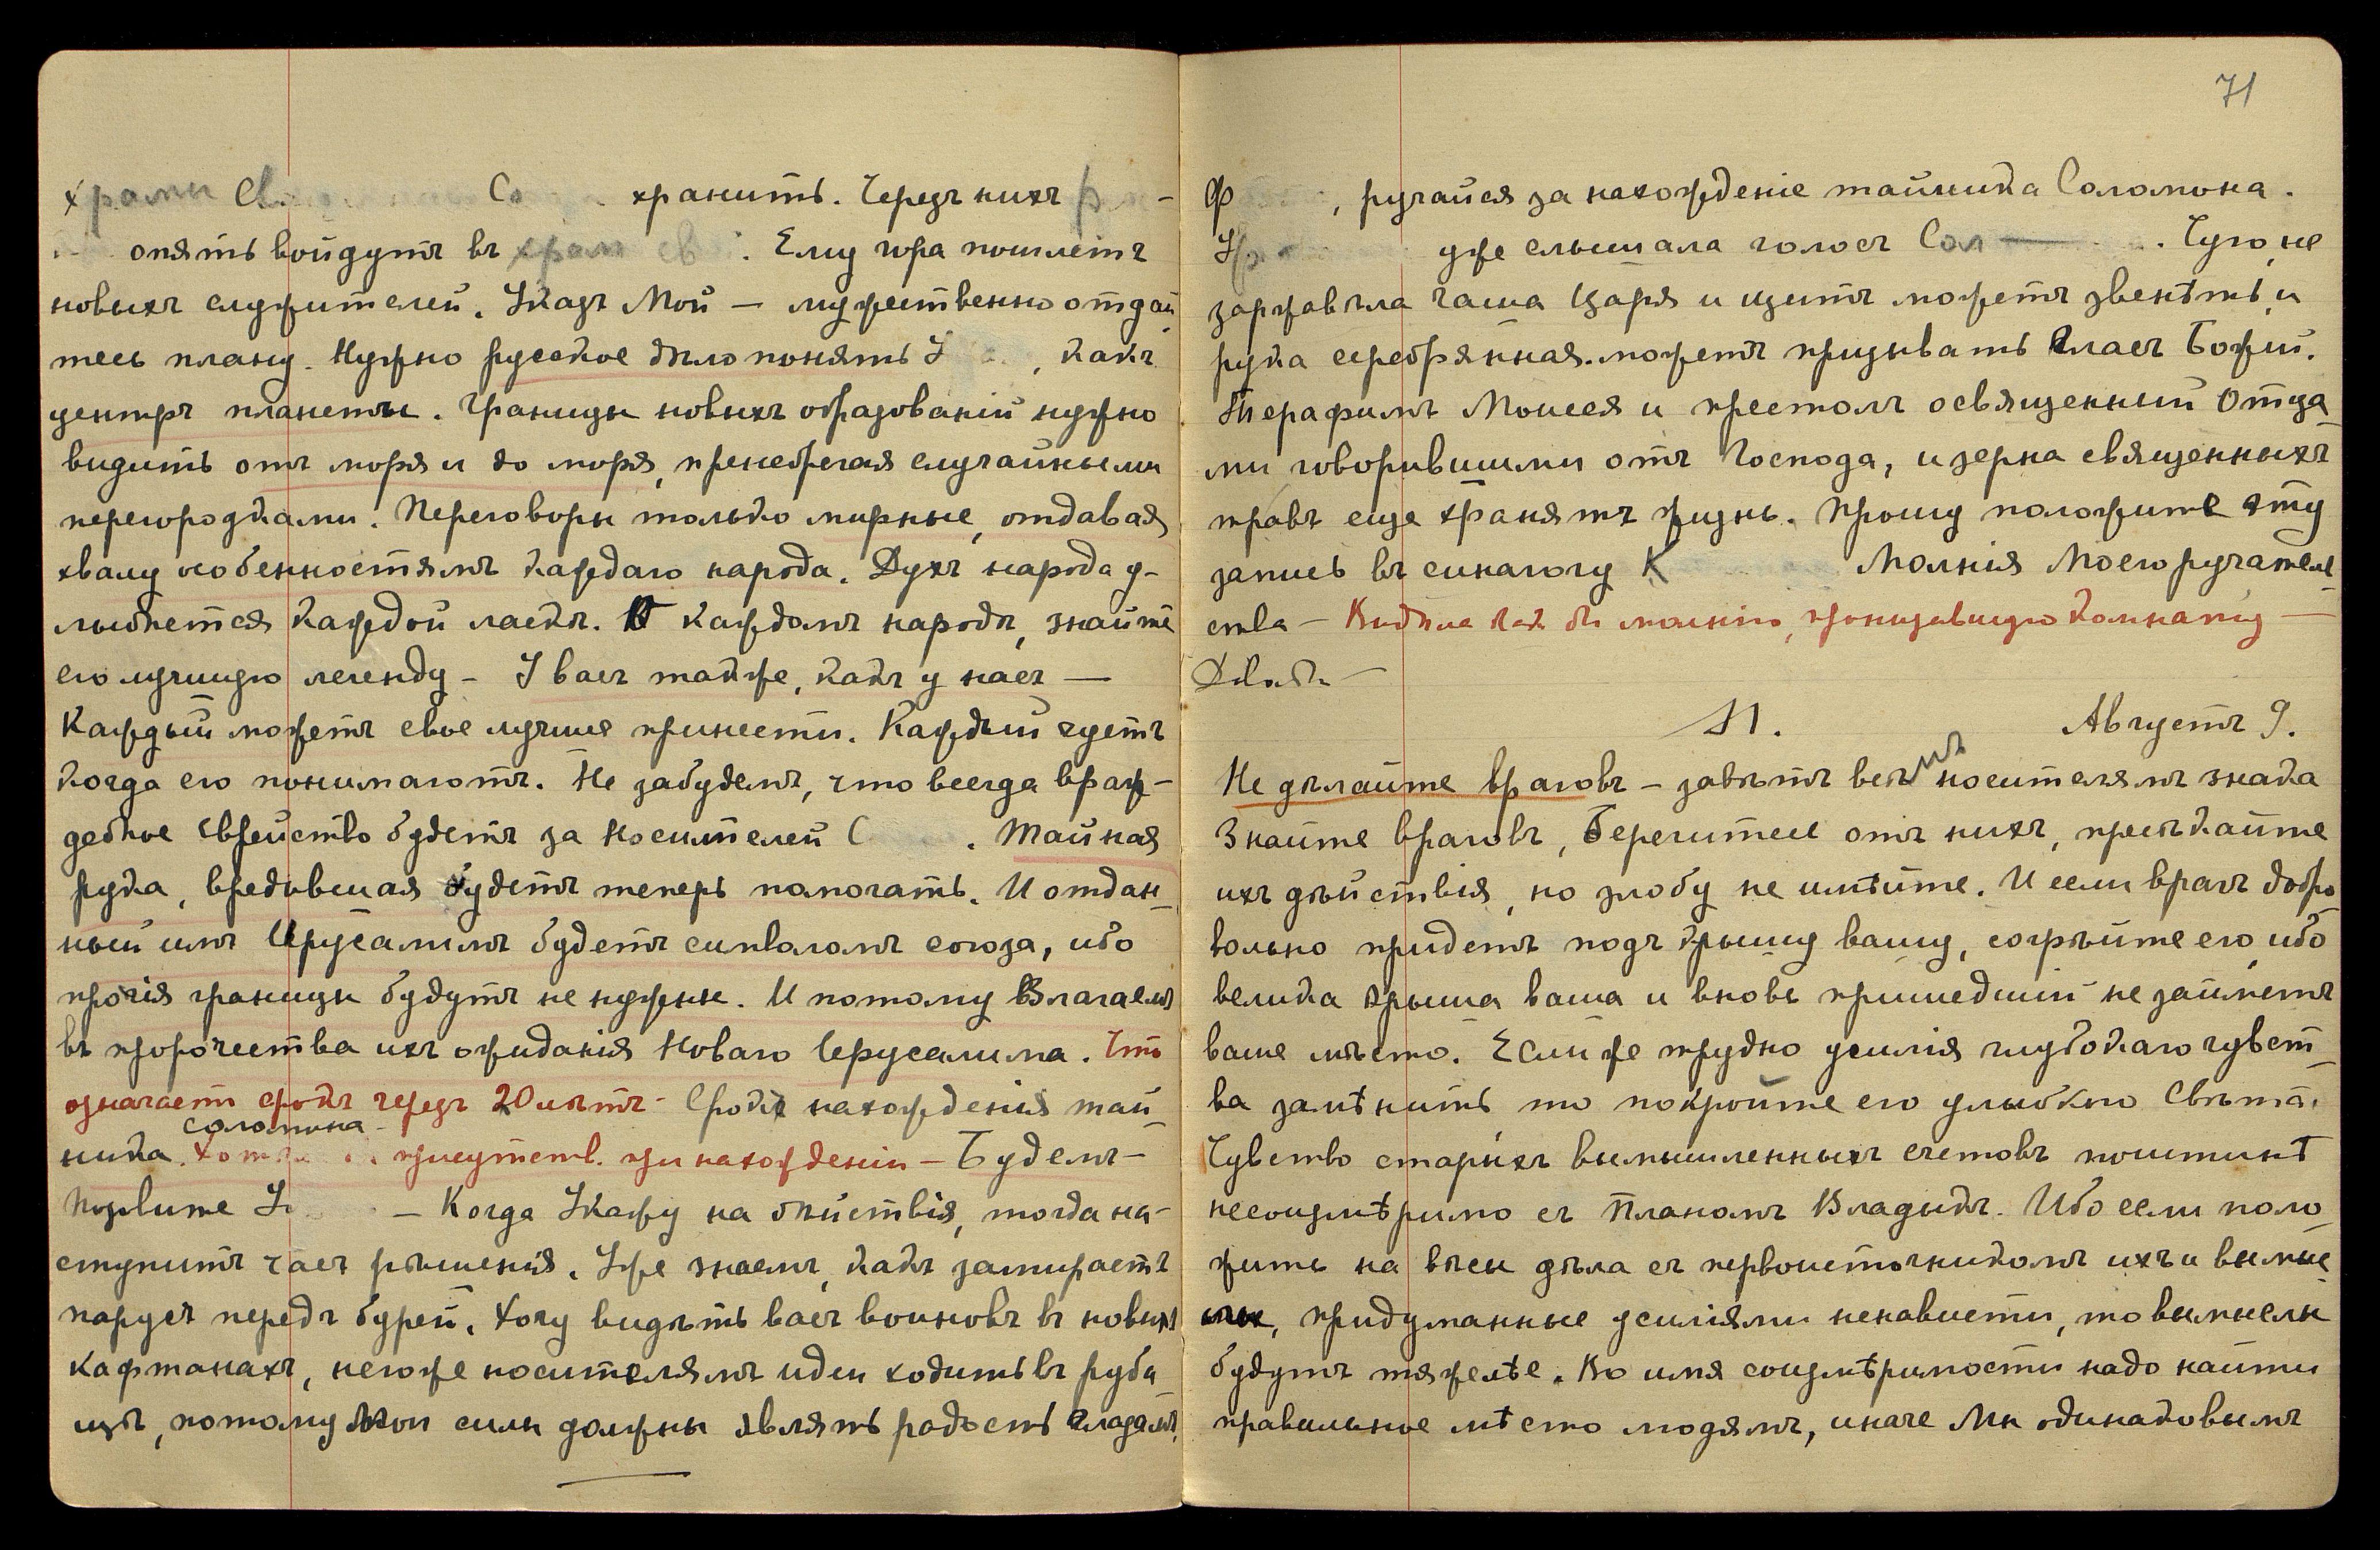 храмы Св Со хранить. Черезъ нихъ
опять войдутъ въ храм св . Ему гора пошлетъ
новыхъ служителей. Указъ Мой — мужественно отдай
тесь плану. Нужно русское дѣло понять У , какъ
центръ планеты. Границы новыхъ образованій нужно
видить отъ моря и до моря, пренебрегая случайными
перегородками. Переговоры только мирные, отдавая
хвалу особенностямъ каждаго народа. Духъ народа у-
лыбнется каждой ласкѣ. В каждомъ народѣ, знайте
его лучшую легенду — У васъ также, какъ у насъ —
Каждый можетъ свое лучшее принести. Каждый чуетъ
когда его понимаютъ. Не забудемъ, что всегда враж-
дебное Еврейство будетъ за носителей С . Тайная
рука, вредившая будетъ теперь помогать. И отдан-
ный имъ Ерусалимъ будетъ символомъ союза, ибо
прочія границы будутъ не нужны. И потому Влагаемъ
въ пророчества ихъ ожиданія Новаго Іерусалима. Что
означаетъ срокъ черезъ 20 лѣтъ — Срокъ нахожденія тай-
Соломона —
ника. присутств. при нахожденіи — Будемъ —
Позовите У — Когда Укажу на дѣйствія, тогда на-
ступитъ часъ рѣшенія. Уже знаемъ, какъ замираетъ
парусъ передъ бурей. Хочу видѣть васъ воиновъ въ новыхъ
кафтанахъ, негоже носителямъ идеи ходить въ руби
щѣ, потому Мои силы должны являть радость глазамъ.
71
Ф , ручайся за нахожденіе тайника Соломона.
У уже слышала голосъ Сол . Чую, не
заржавѣла чаша Царя и щитъ можетъ звенѣть, и
рука серебрянная можетъ призывать Гласъ Божій.
Терафимъ Моисея и престолъ освященный Отца
ми говорившими отъ Господа, и зерна священныхъ
травъ еще хранятъ жизнь. Прошу положите эту
запись въ синагогу К Молнія Моего ручатель
ства — Видѣла какъ бы молнію, пронизавшую комнату —
Да —
Л. Августъ 9.
Не дѣлайте враговъ — завѣтъ всѣмъ носителямъ знака
Знайте враговъ, берегитесь отъ нихъ, пресѣкайте
ихъ дѣйствія, но злобу не имѣйте. И если врагъ добро
вольно придетъ подъ крышу вашу, согрѣйте его, ибо
велика крыша ваша и вновь пришедшій не займетъ
ваше мѣсто. Если же трудно усилія глубокаго чувст
ва замѣнить то покройте его улыбкою Свѣта.
Чувство старыхъ вымышленныхъ счетовъ поистинѣ
несоизмѣримо съ Планомъ Владыкъ. Ибо если поло
жить на вѣсы дѣла съ первоисточникомъ ихъ и вымыс
лы, придуманные усиліями ненависти, то вымыслы
будутъ тяжелѣе. Во имя соизмѣримости надо найти
правильное мѣсто людямъ, иначе Мы одинаковымъ